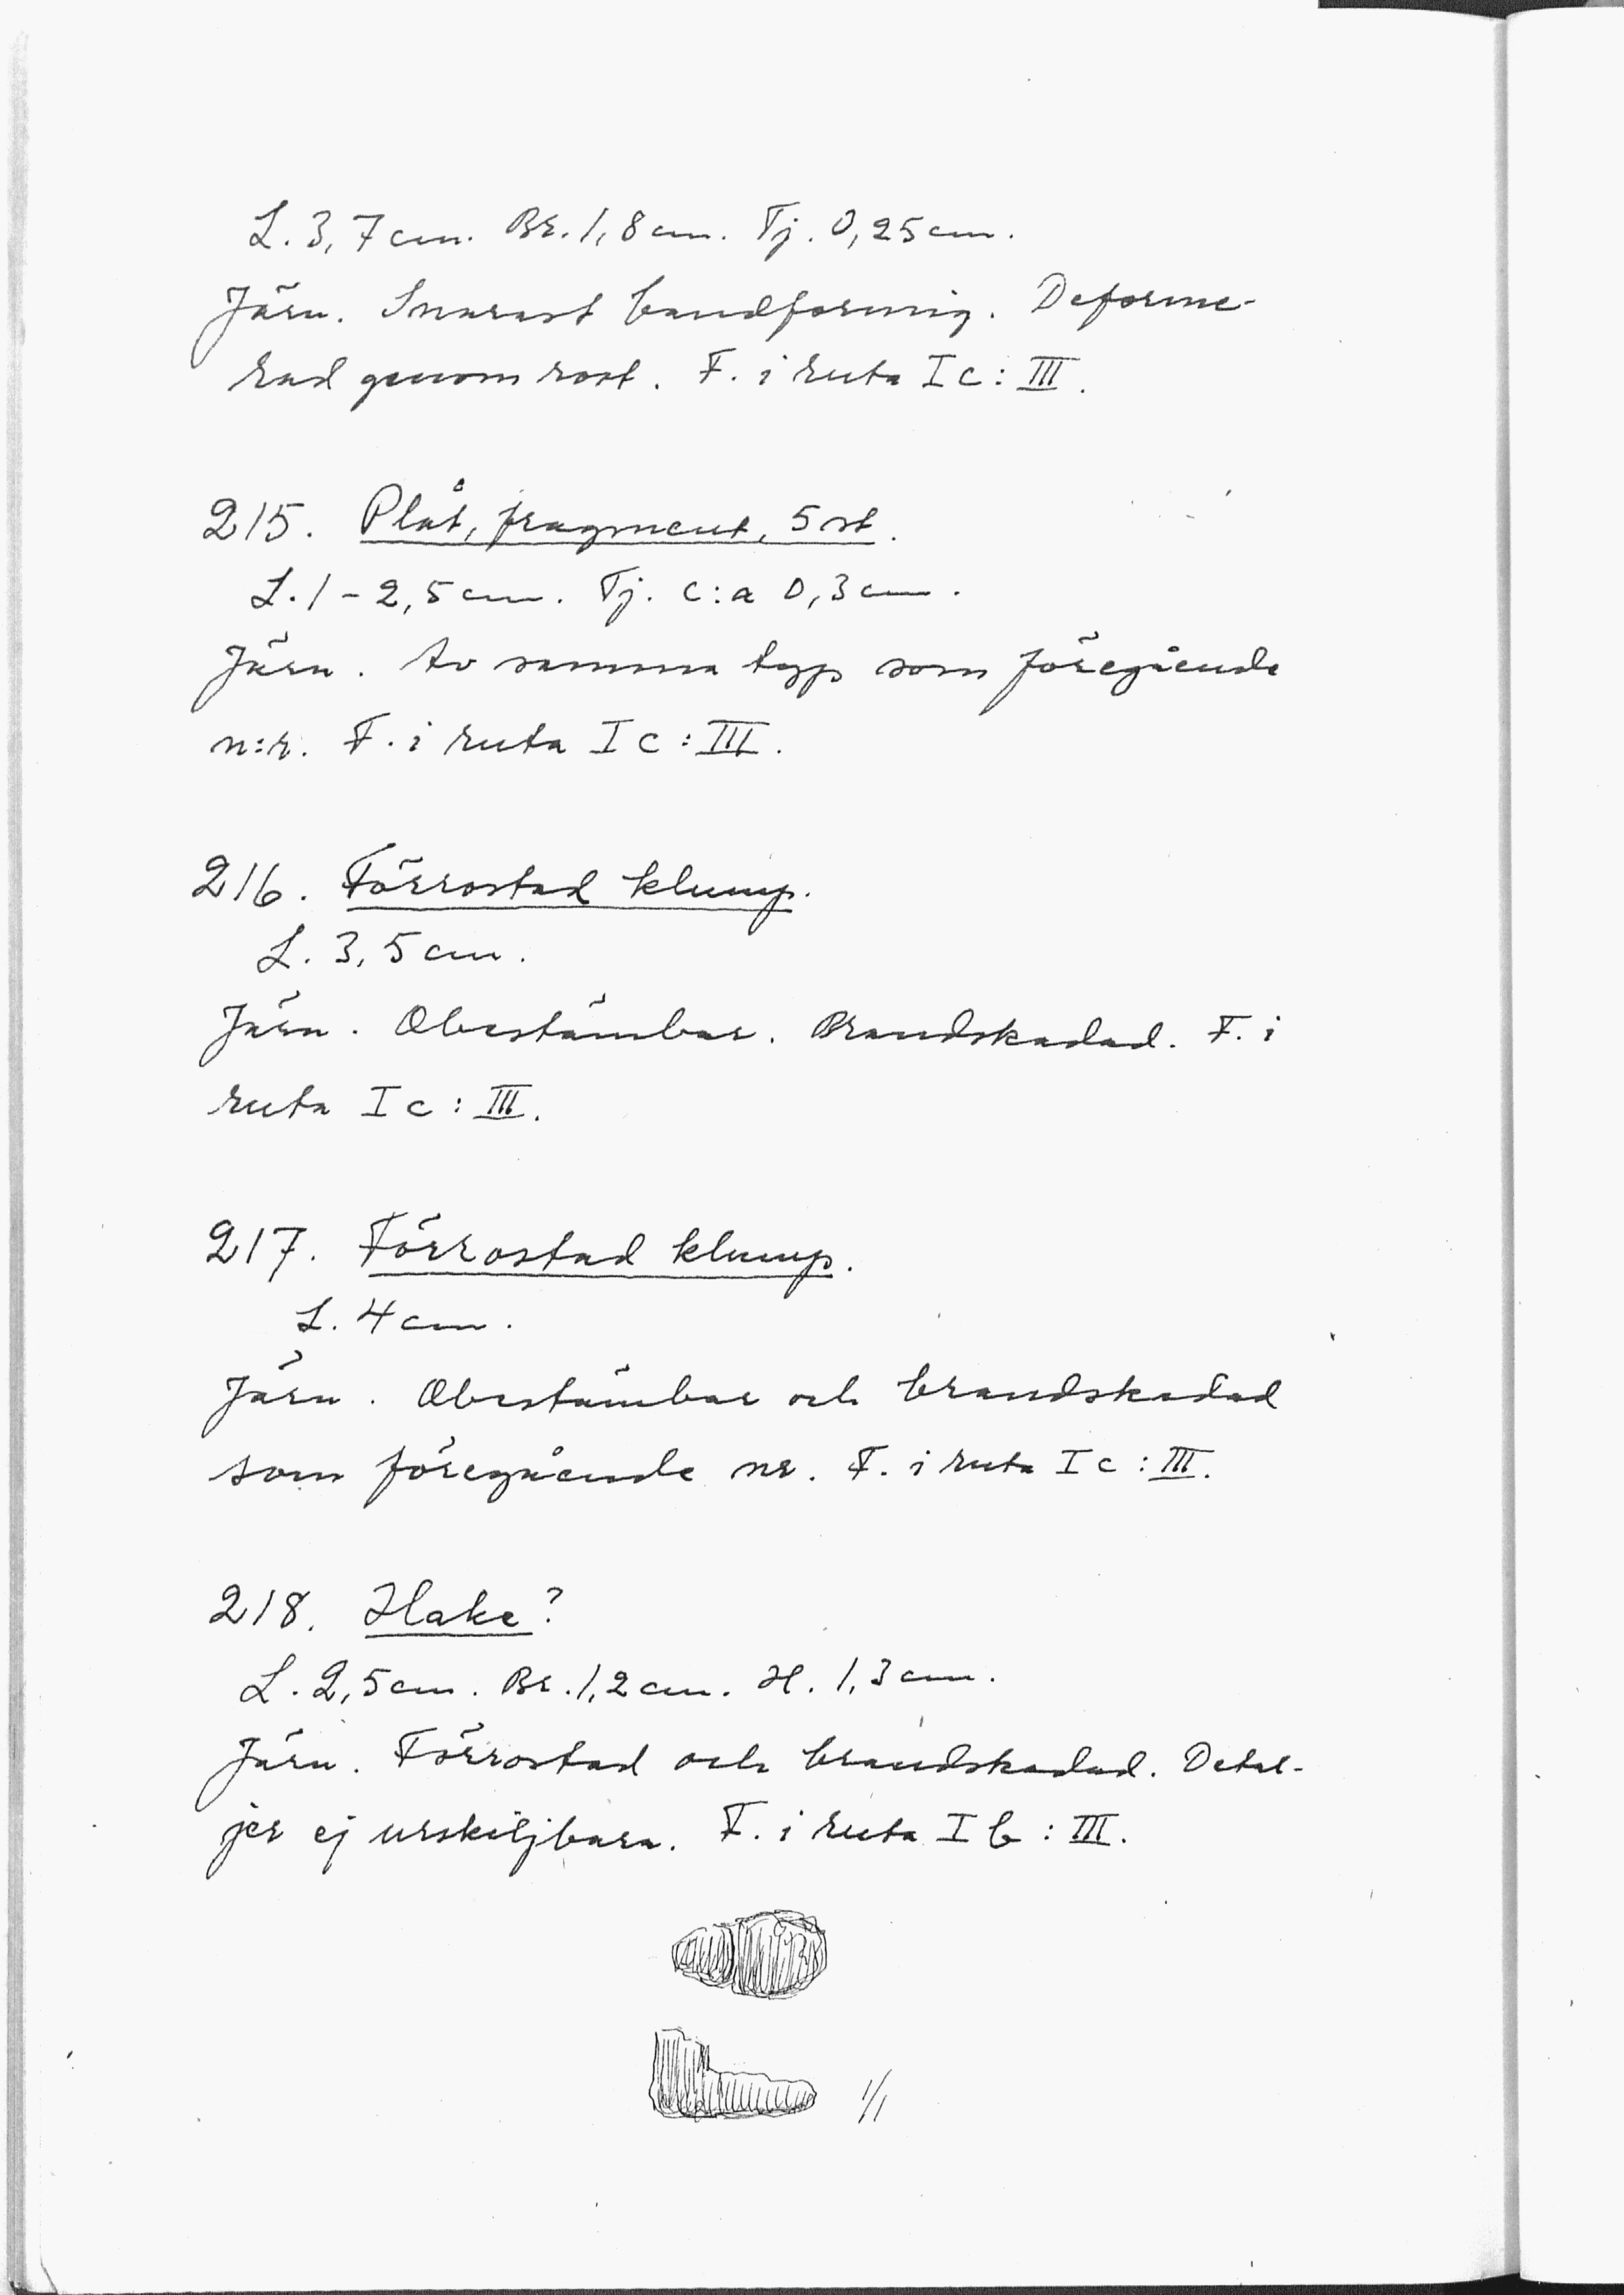 L. 3,7 cm. Br. 1,8 cm. Tj. 0,25 cm.
Järn. Snarast bandformig. Deforme-
rad genom rost. F. i ruta I c : III.
215. Plåt, fragment, 5 st.
L. 1 - 2,5 cm. Tj. c:a 0,3 cm.
Järn. Av samma typ som föregående
n:r. F. i ruta I c : III.
216. Förrostad klump.
L. 3,5 cm.
Järn. Obestämbar. Brandskadad. F. i
ruta I c : III.
217. Förrostad klump.
L. 4 cm.
Järn. Obestämbar och brandskadad
som föregående nr. F. i ruta I c : III.
218. Hake?
L. 2,5 cm. Br. 1,2 cm. H. 1,3 cm.
Järn. Förrostad och brandskadad. Detal-
jer ej urskiljbara. F. i ruta I b : III.
1/1